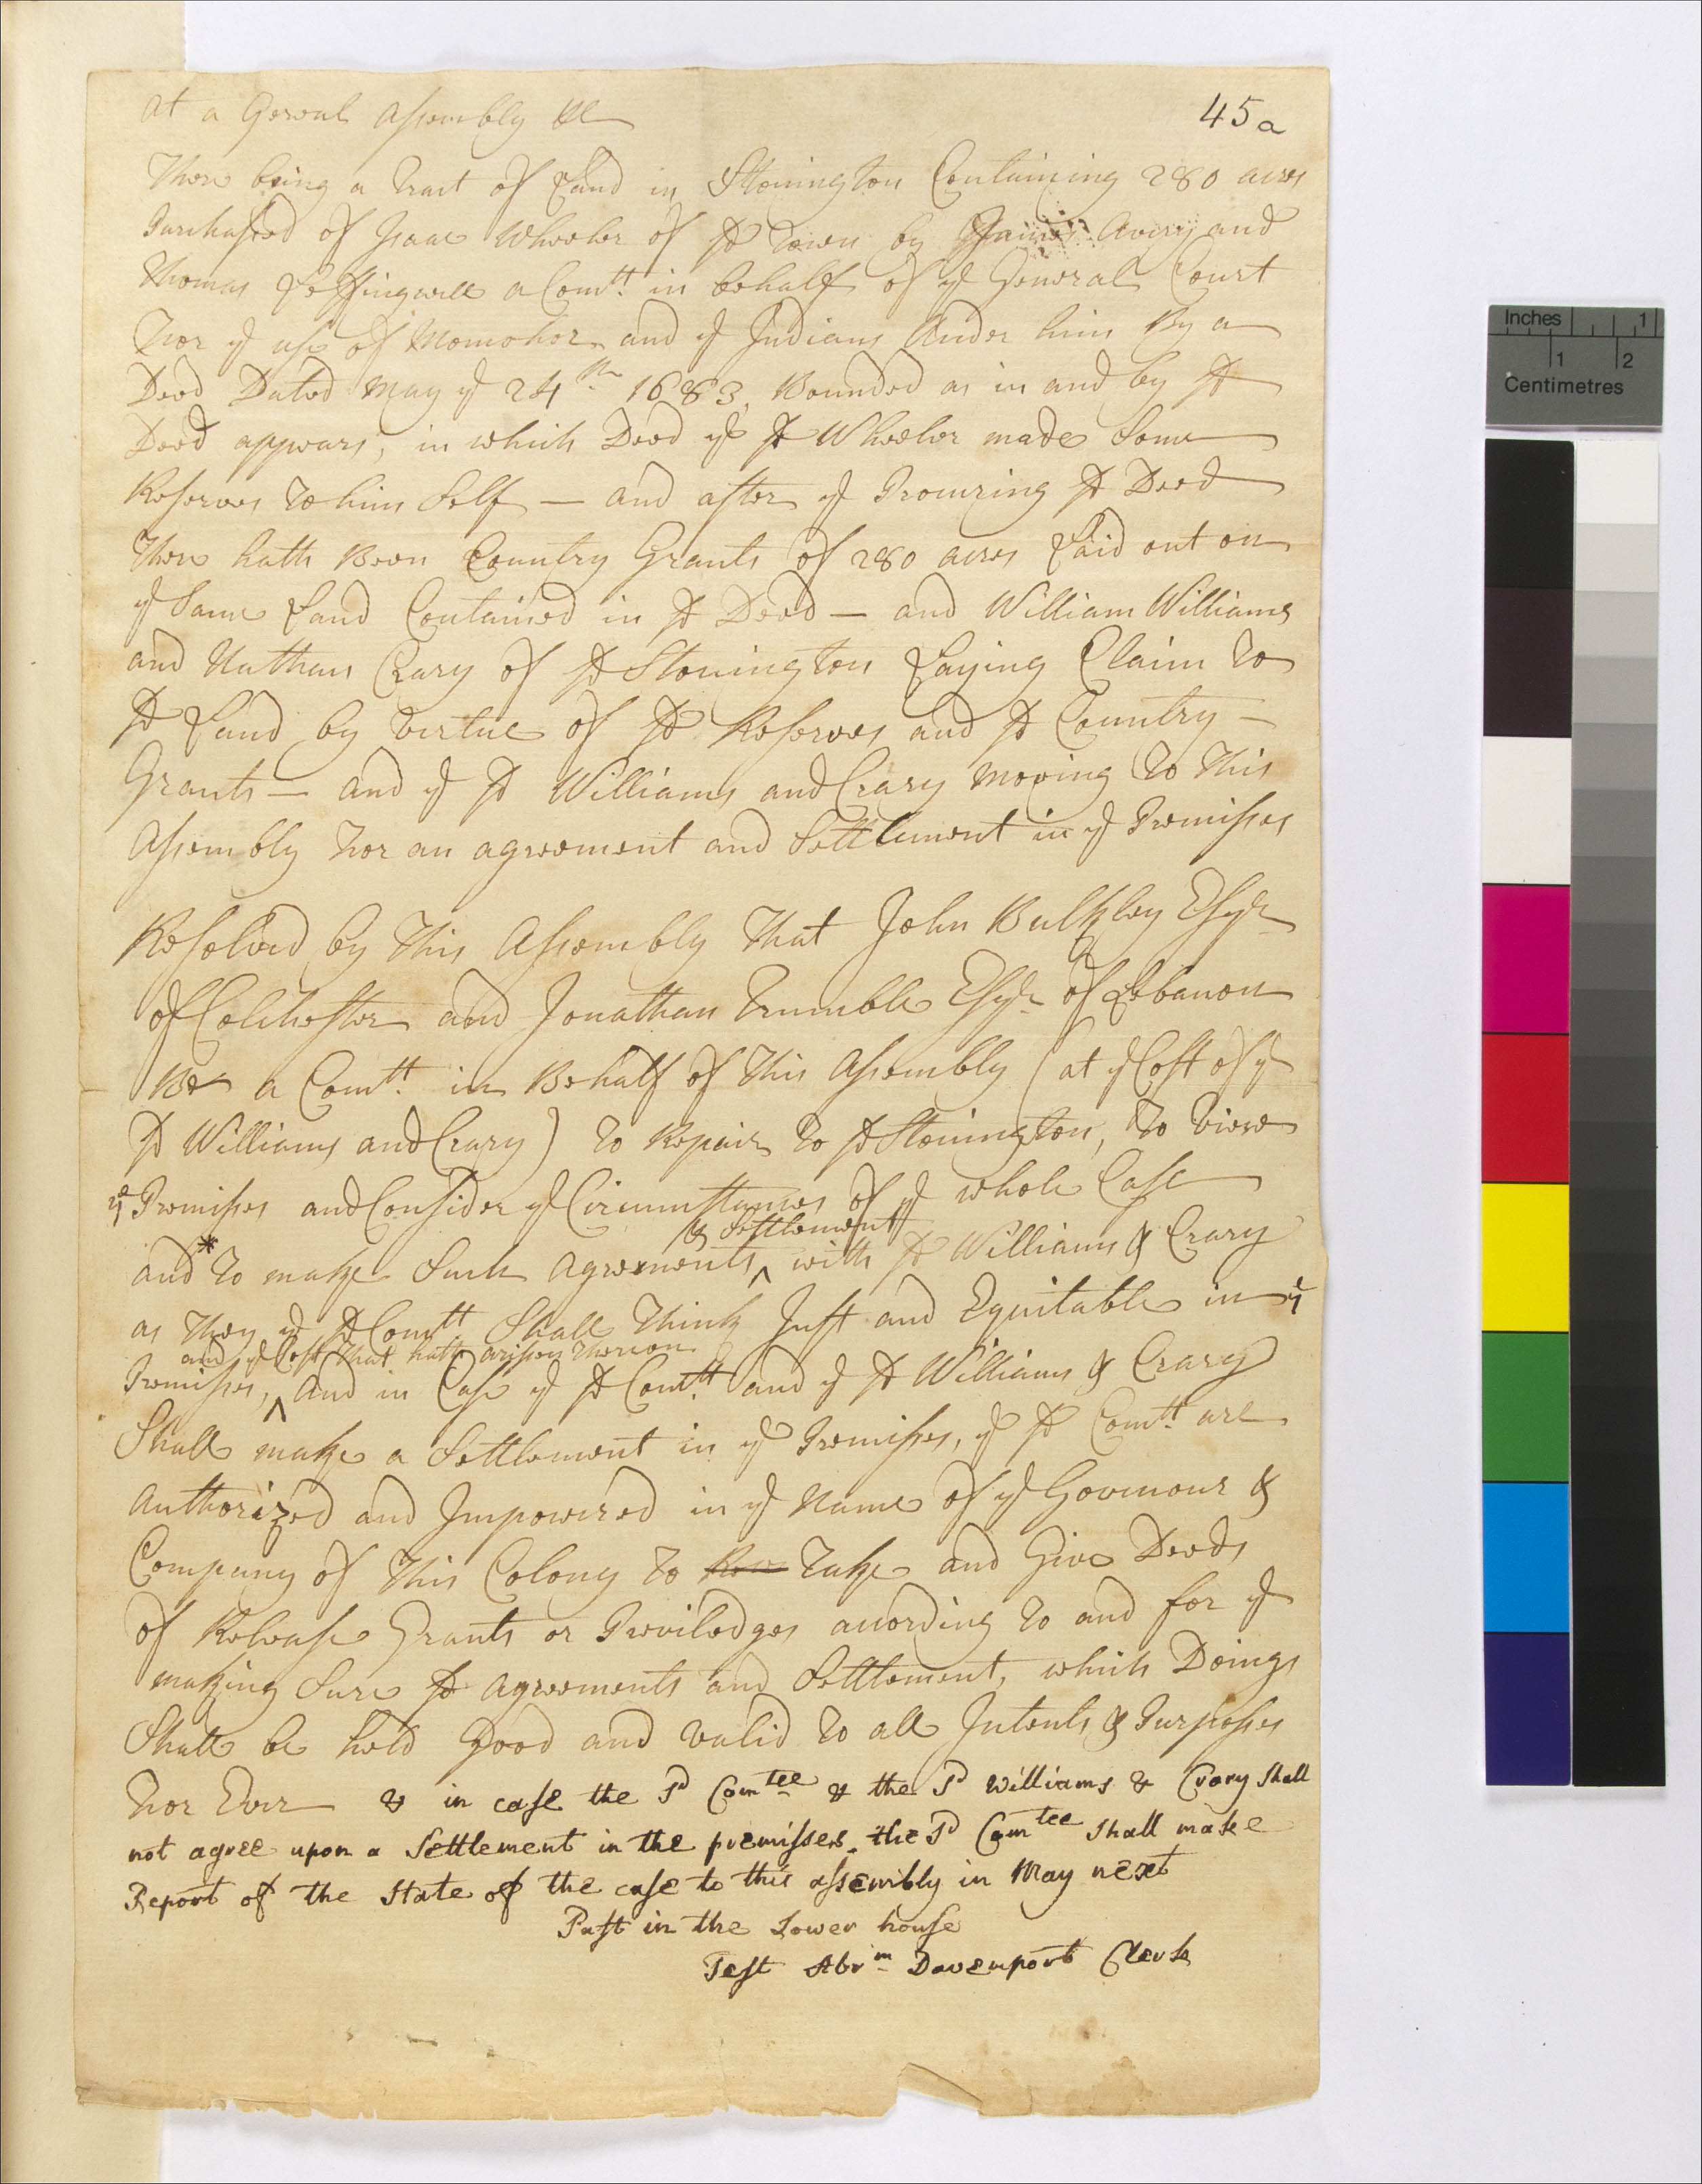 45a
At a General Assembly &c
There being a Tract of Land in Stonington Containing 280 acres
Purchassed of Isaac Wheeler of sd Town by James Avery and
Thomas Leffingwell a Comtt in behalf of ye General Court
For ye use of Momohor and ye Indians Under him By a
Deed Dated May ye 24th 1683, Bounded as in and by sd
Deed appears, in which Deed ye sd Wheeler made Some
Reserves To him Self — and after ye Procuring sd Deed
There hath Been Country Grants of 280 acres Laid out on
ye Same Land Contained in sd Deed — and William Williams
and Nathan Crary of sd Stonington Laying Claim To
sd Land by Virtue of sd Reserves and sd Country
Grants — and ye sd Williams and Crary Moving To This
Assembly For an agreement and Settlement in ye Premisses
Resolved by This Assembly That John Bulkley Esqr
of Colchester and Jonathan Trumble Esqr of Lebanon
Be a Comtt in Behalf of This Assembly (at ye Cost of ye
sd Williams and Crary) To Repair To sd Stonington, To View
ye Premisses and Consider ye Circumstances of ye whole Case
& Settlement
and * To make Such Agreements ^ with sd Williams & Crary
as They ye sd Comtt Shall Think Just and Equitable in ye
and ye Cost That hath arissen Thereon
Premisses, ^ And in Case ye sd Comtt and ye sd Williams & Crary
Shall make a Settlement in ye Premisses, ye sd Comtt are
Authorized and Impowered in ye Name of ye Governour &
Company of This Colony To Take and Give Deeds
of Release Grants or Priviledges according To and for ye
making Sure sd Agreements and Settlement, which Doings
Shall be held Good and Valid To all Intents & Purposses
For Ever & in case the sd Comtee & the sd Williams & Crary Shall
not agree upon a Settlement in the premisses the sd Comtee Shall make
Report of the State of the case to this assembly in May next
Past in the Lower house
Test Abrm Davenport Clerk
Inches 1
1 2
Centimetres